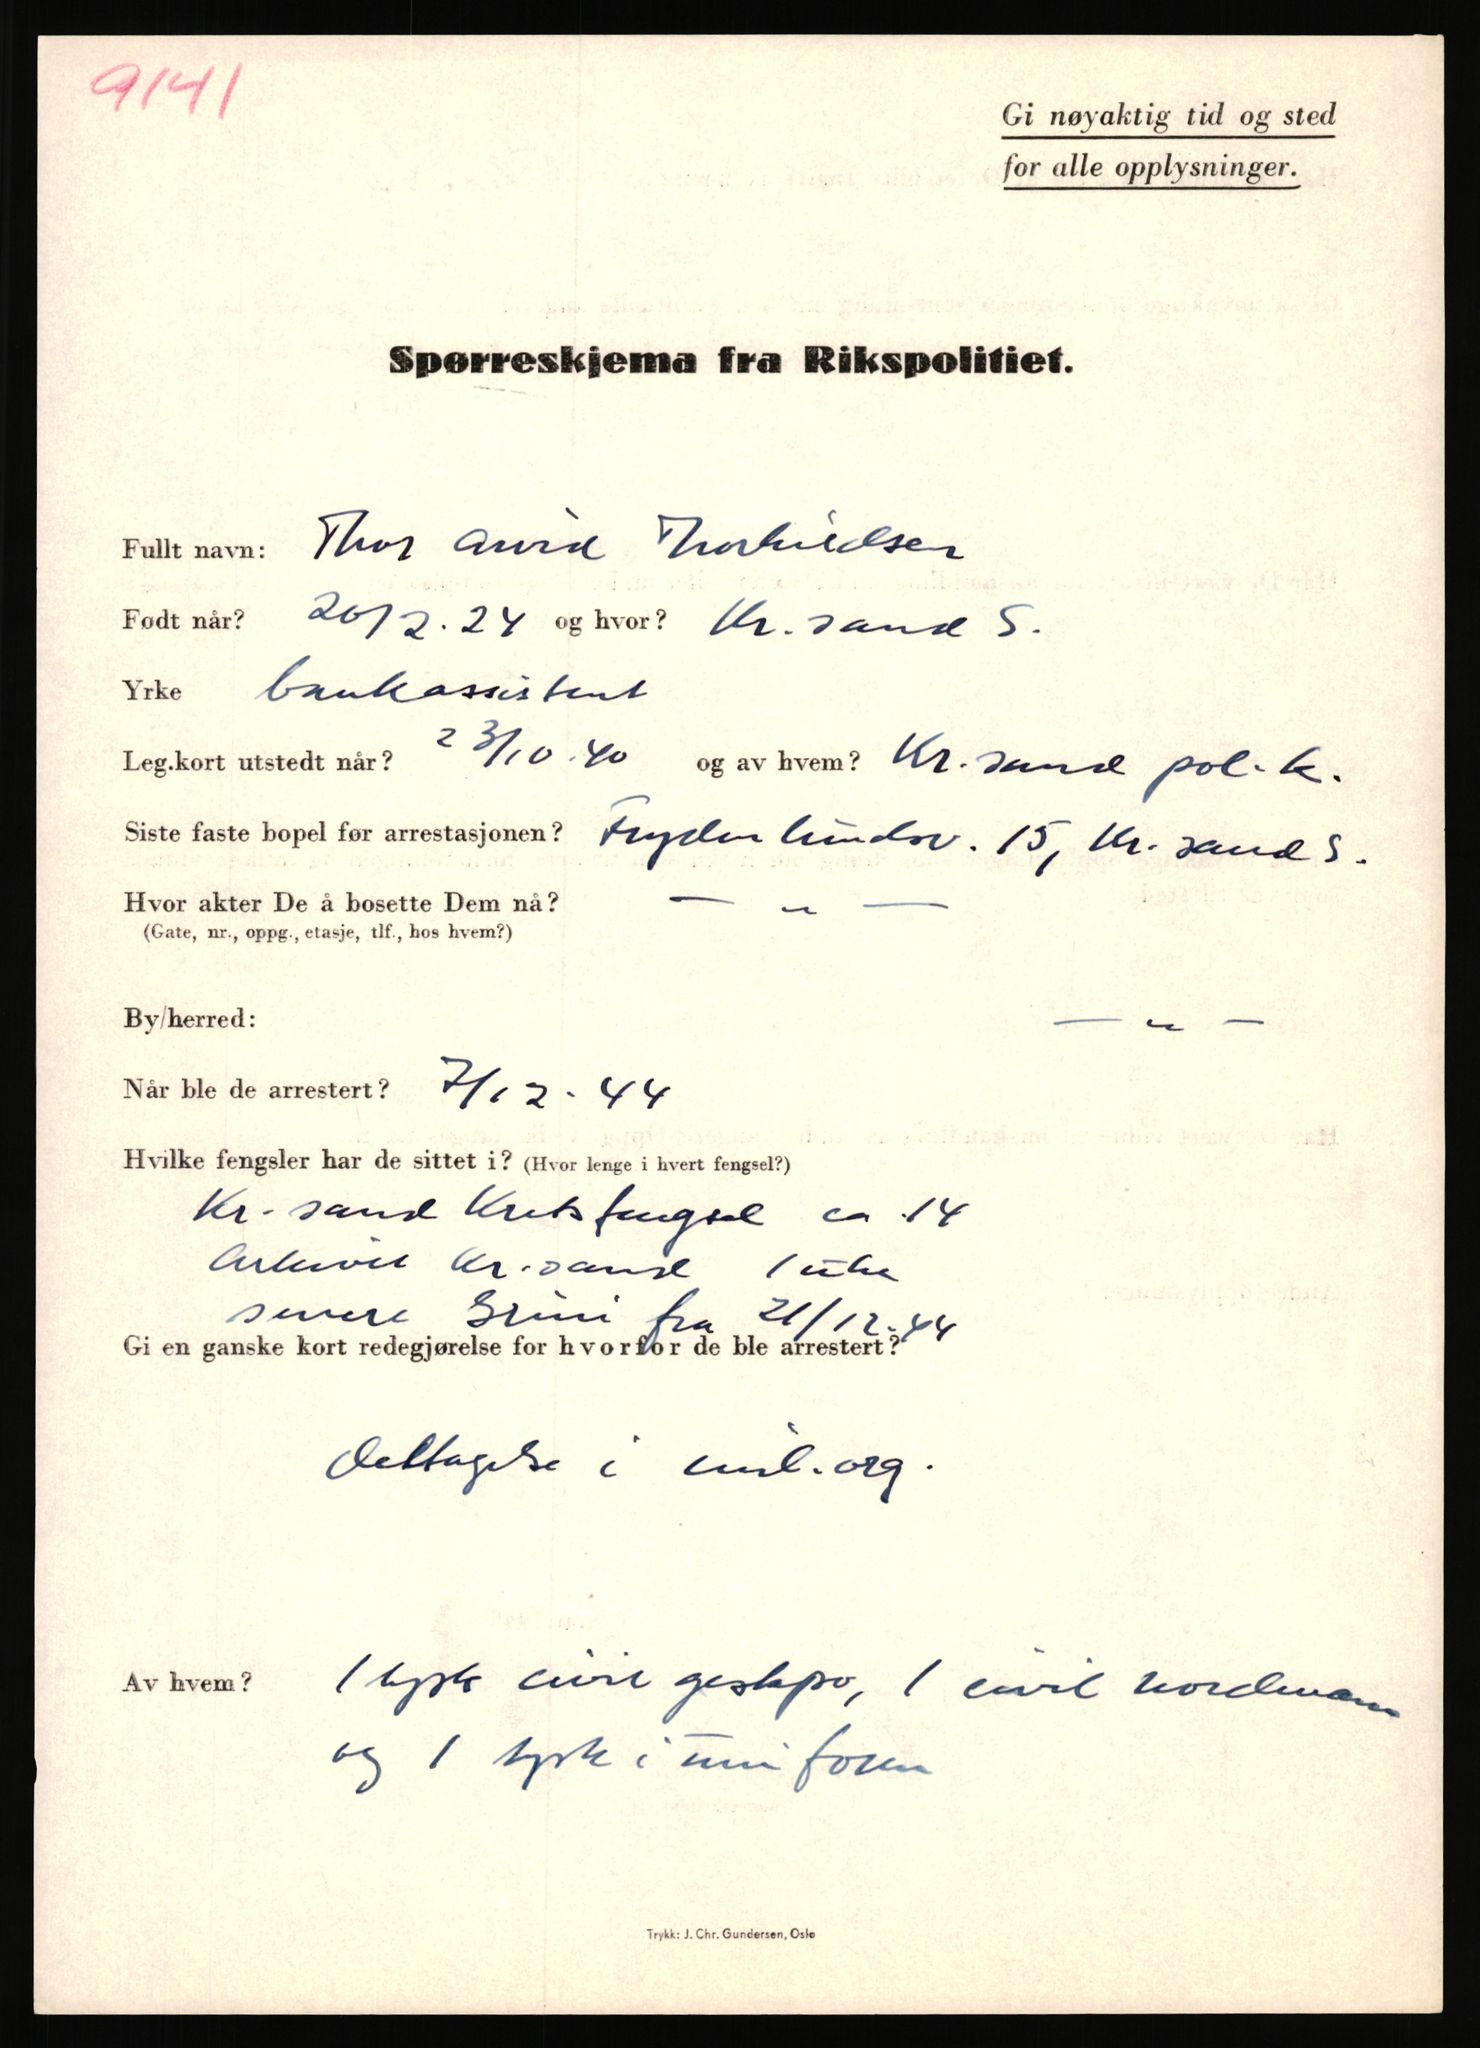 9141
Gi nøyaktig tid og sted
for alle opplysninger.
Spørreskjema fra Rikspolitiet.
Fullt navn: Thor Arvid Thorkildsen
Født når? 20/2.24 og hvor? Kr.sand S.
Yrke bankassistent
Leg.kort utstedt når? 23/10.40 og av hvem? Kr.sand pol.k.
Siste faste bopel før arrestasjonen? 15, Kr.sand S.
Hvor akter De å bosette Dem nå? — „ —
(Gate, nr., oppg., etasje, tlf., hos hvem?)
By/herred: — „ —
Når ble de arrestert? 7/12.44
Hvilke fengsler har de sittet i? (Hvor lenge i hvert fengsel?)
Kr.sand Kretsfengsel ca. 14
Arkivet Kr.sand 1 uke
senere Grini fra 21/12.44
Gi en ganske kort redegjørelse for hvorfor de ble arrestert?
deltagelse i mil.org.
Av hvem? 1 tysk civil gestapo, 1 civil nordmann
og 1 tysk i uniform
Trykk: J. Chr. Gundersen, Oslo